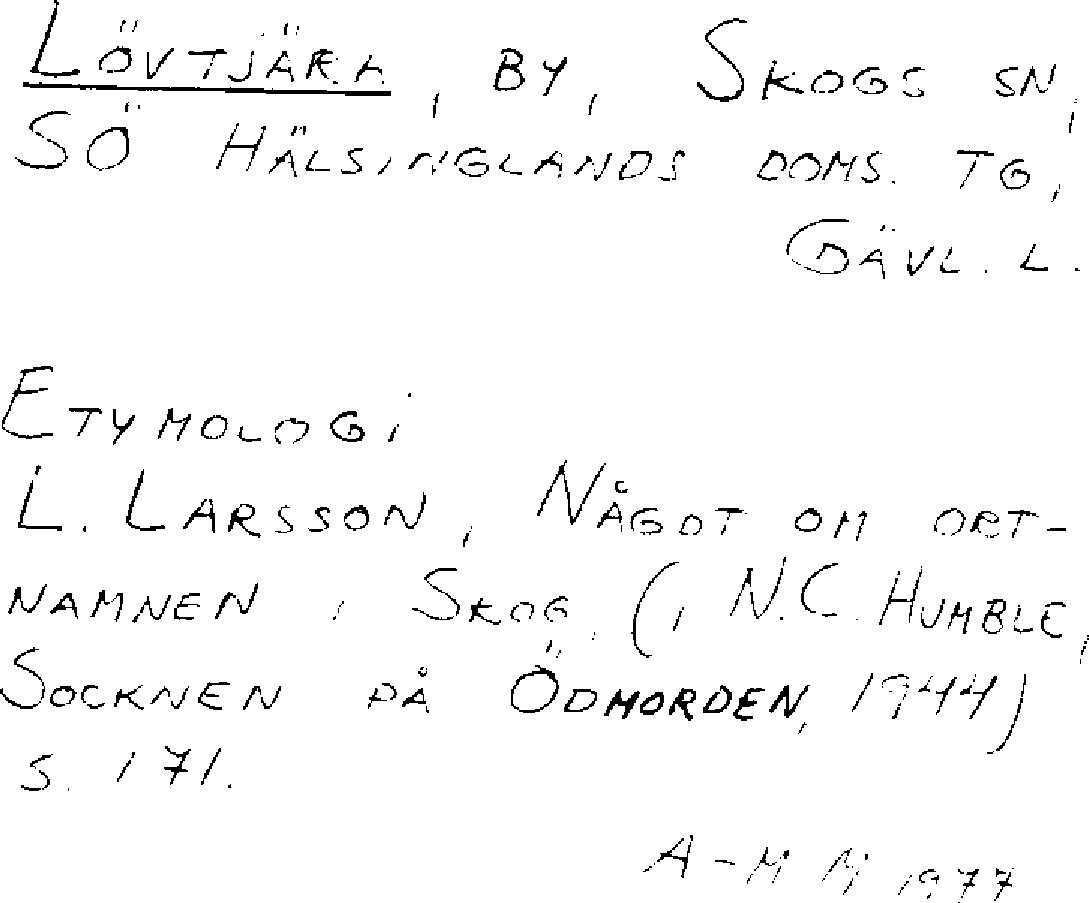 LÖVTJÄRA, BY, SKOGS SN,
SÖ HÄLSINGLANDS DOMS. TG,
GÄVL. L.
ETYMOLOGI
L. LARSSON, NÅGOT OM ORT-
NAMNEN I SKOG. (I N.C. HUMBLE,
SOCKNEN PÅ ÖDMORDEN, 1944)
S. 171.
A-M M 1977